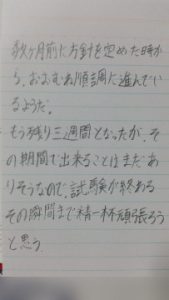 数ヶ月前に方針を定めた時か
ら、おおむね順調に進んでい
るようだ。
もう残り三週間となったが、そ
の期間で出来ることはまだあ
りそうなので、試験が終わる
その瞬間まで精一杯頑張ろう
と思う。